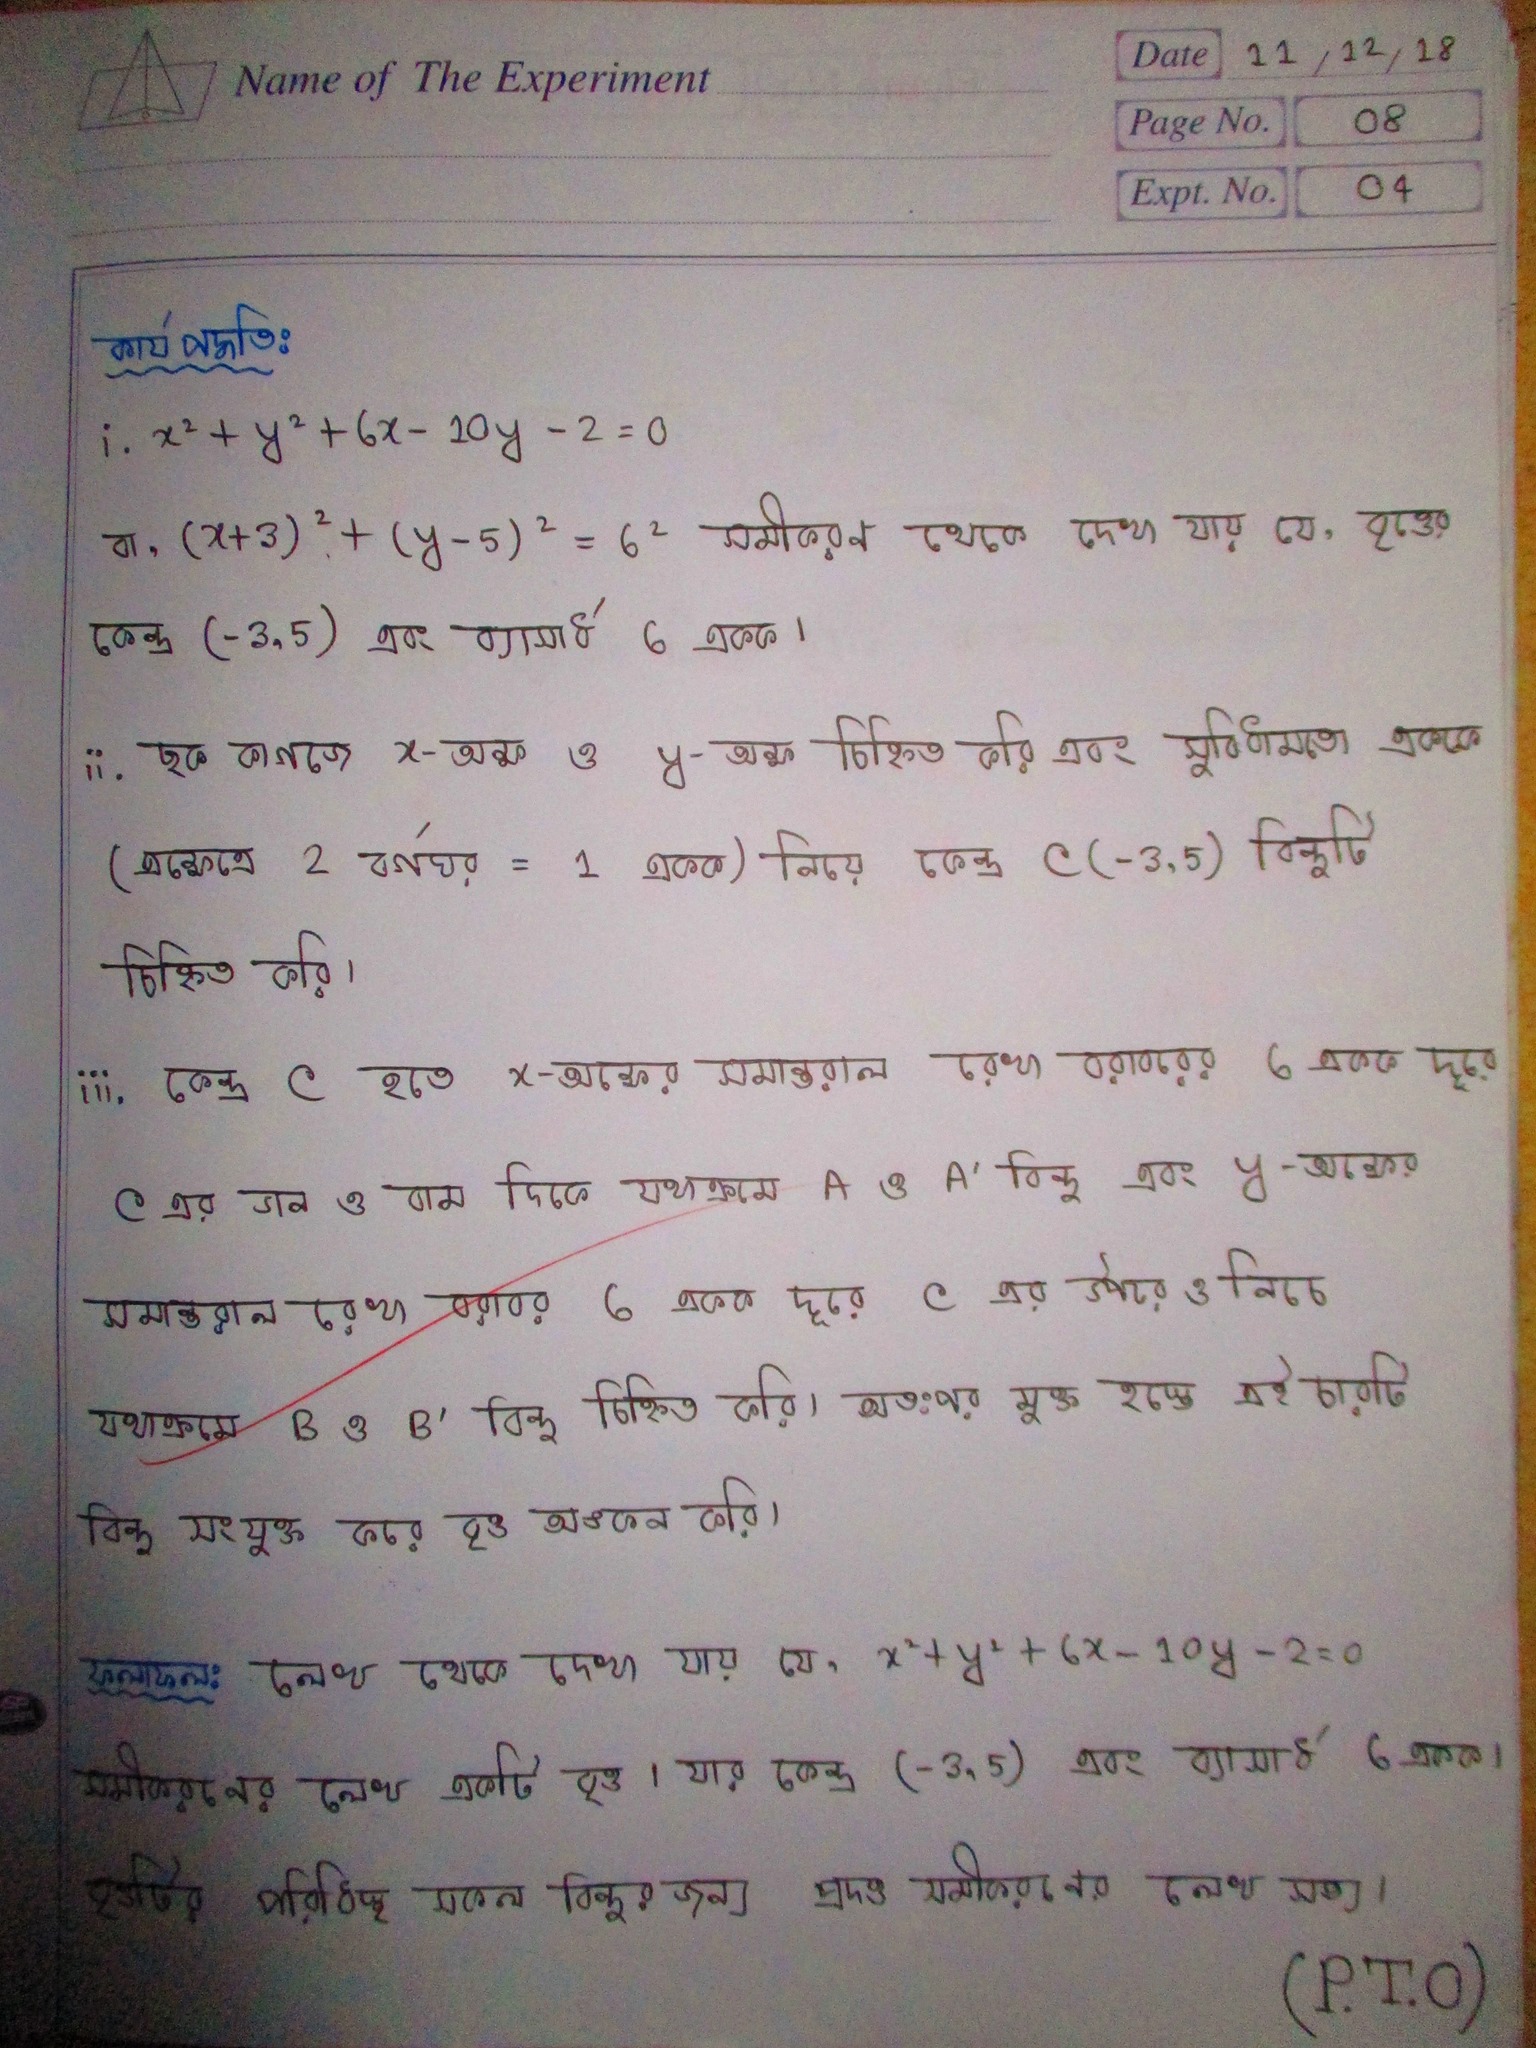 Name of The Experiment
Date 11/12/18
Page No. 08
Expt. No. 04
কার্য পদ্ধতিঃ
i. x² + y² + 6x - 10y - 2 = 0
বা, (x+3)² + (y-5)² = 6² সমীকরন থেকে দেখা যায় যে, বৃত্তের
কেন্দ্র (-3,5) এবং ব্যাসার্ধ 6 একক।
ii. ছক কাগজে x-অক্ষ ও y-অক্ষ চিহ্নিত করি এবং সুবিধামতো একক
(এক্ষেত্রে 2 বর্গঘর = 1 একক) নিয়ে কেন্দ্র C(-3,5) বিন্দুটি
চিহ্নিত করি।
iii. কেন্দ্র C হতে x-অক্ষের সমান্তরাল রেখা বরাবরের 6 একক দূরে
C এর ডান ও বাম দিকে যথাক্রমে A ও A' বিন্দু এবং y-অক্ষের
সমান্তরাল রেখা বরাবর 6 একক দূরে C এর উপরে ও নিচে
যথাক্রমে B ও B' বিন্দু চিহ্নিত করি। অতঃপর মুক্ত হস্তে এই চারটি
বিন্দু সংযুক্ত করে বৃত্ত অঙ্কন করি।
ফলাফলঃ লেখ থেকে দেখা যায় যে, x²+y²+6x-10y-2=0
সমীকরনের লেখ একটি বৃত্ত। যার কেন্দ্র (-3,5) এবং ব্যাসার্ধ 6 একক।
বৃত্তটির পরিধিস্থ সকল বিন্দুর জন্য প্রদত্ত সমীকরনের লেখ সত্য।
(P.T.O)